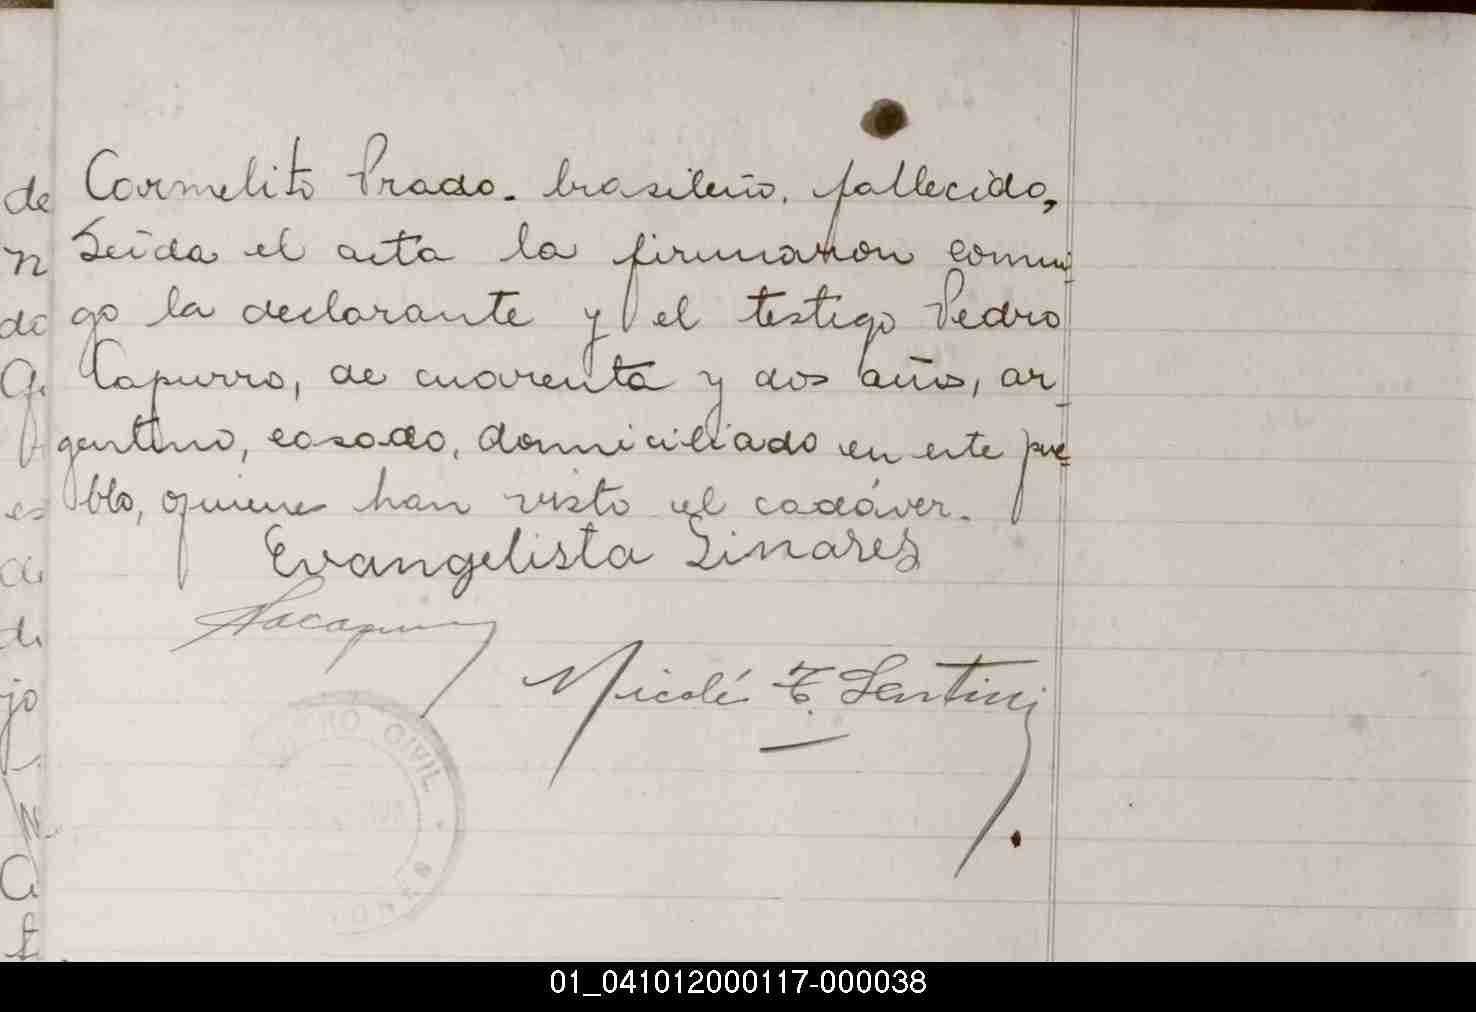 Carmelito Prado. brasileño. fallecido,
Leída el acta la firmaron conmi
go la declarante y el testigo Pedro
Capurro, de cuarenta y dos años, ar
gentino, casado, domiciliado en este pue
blo, quienes han visto el cadáver.
Evangelista Linares
Nicolé F. Sentini
CIVIL
01_041012000117-000038